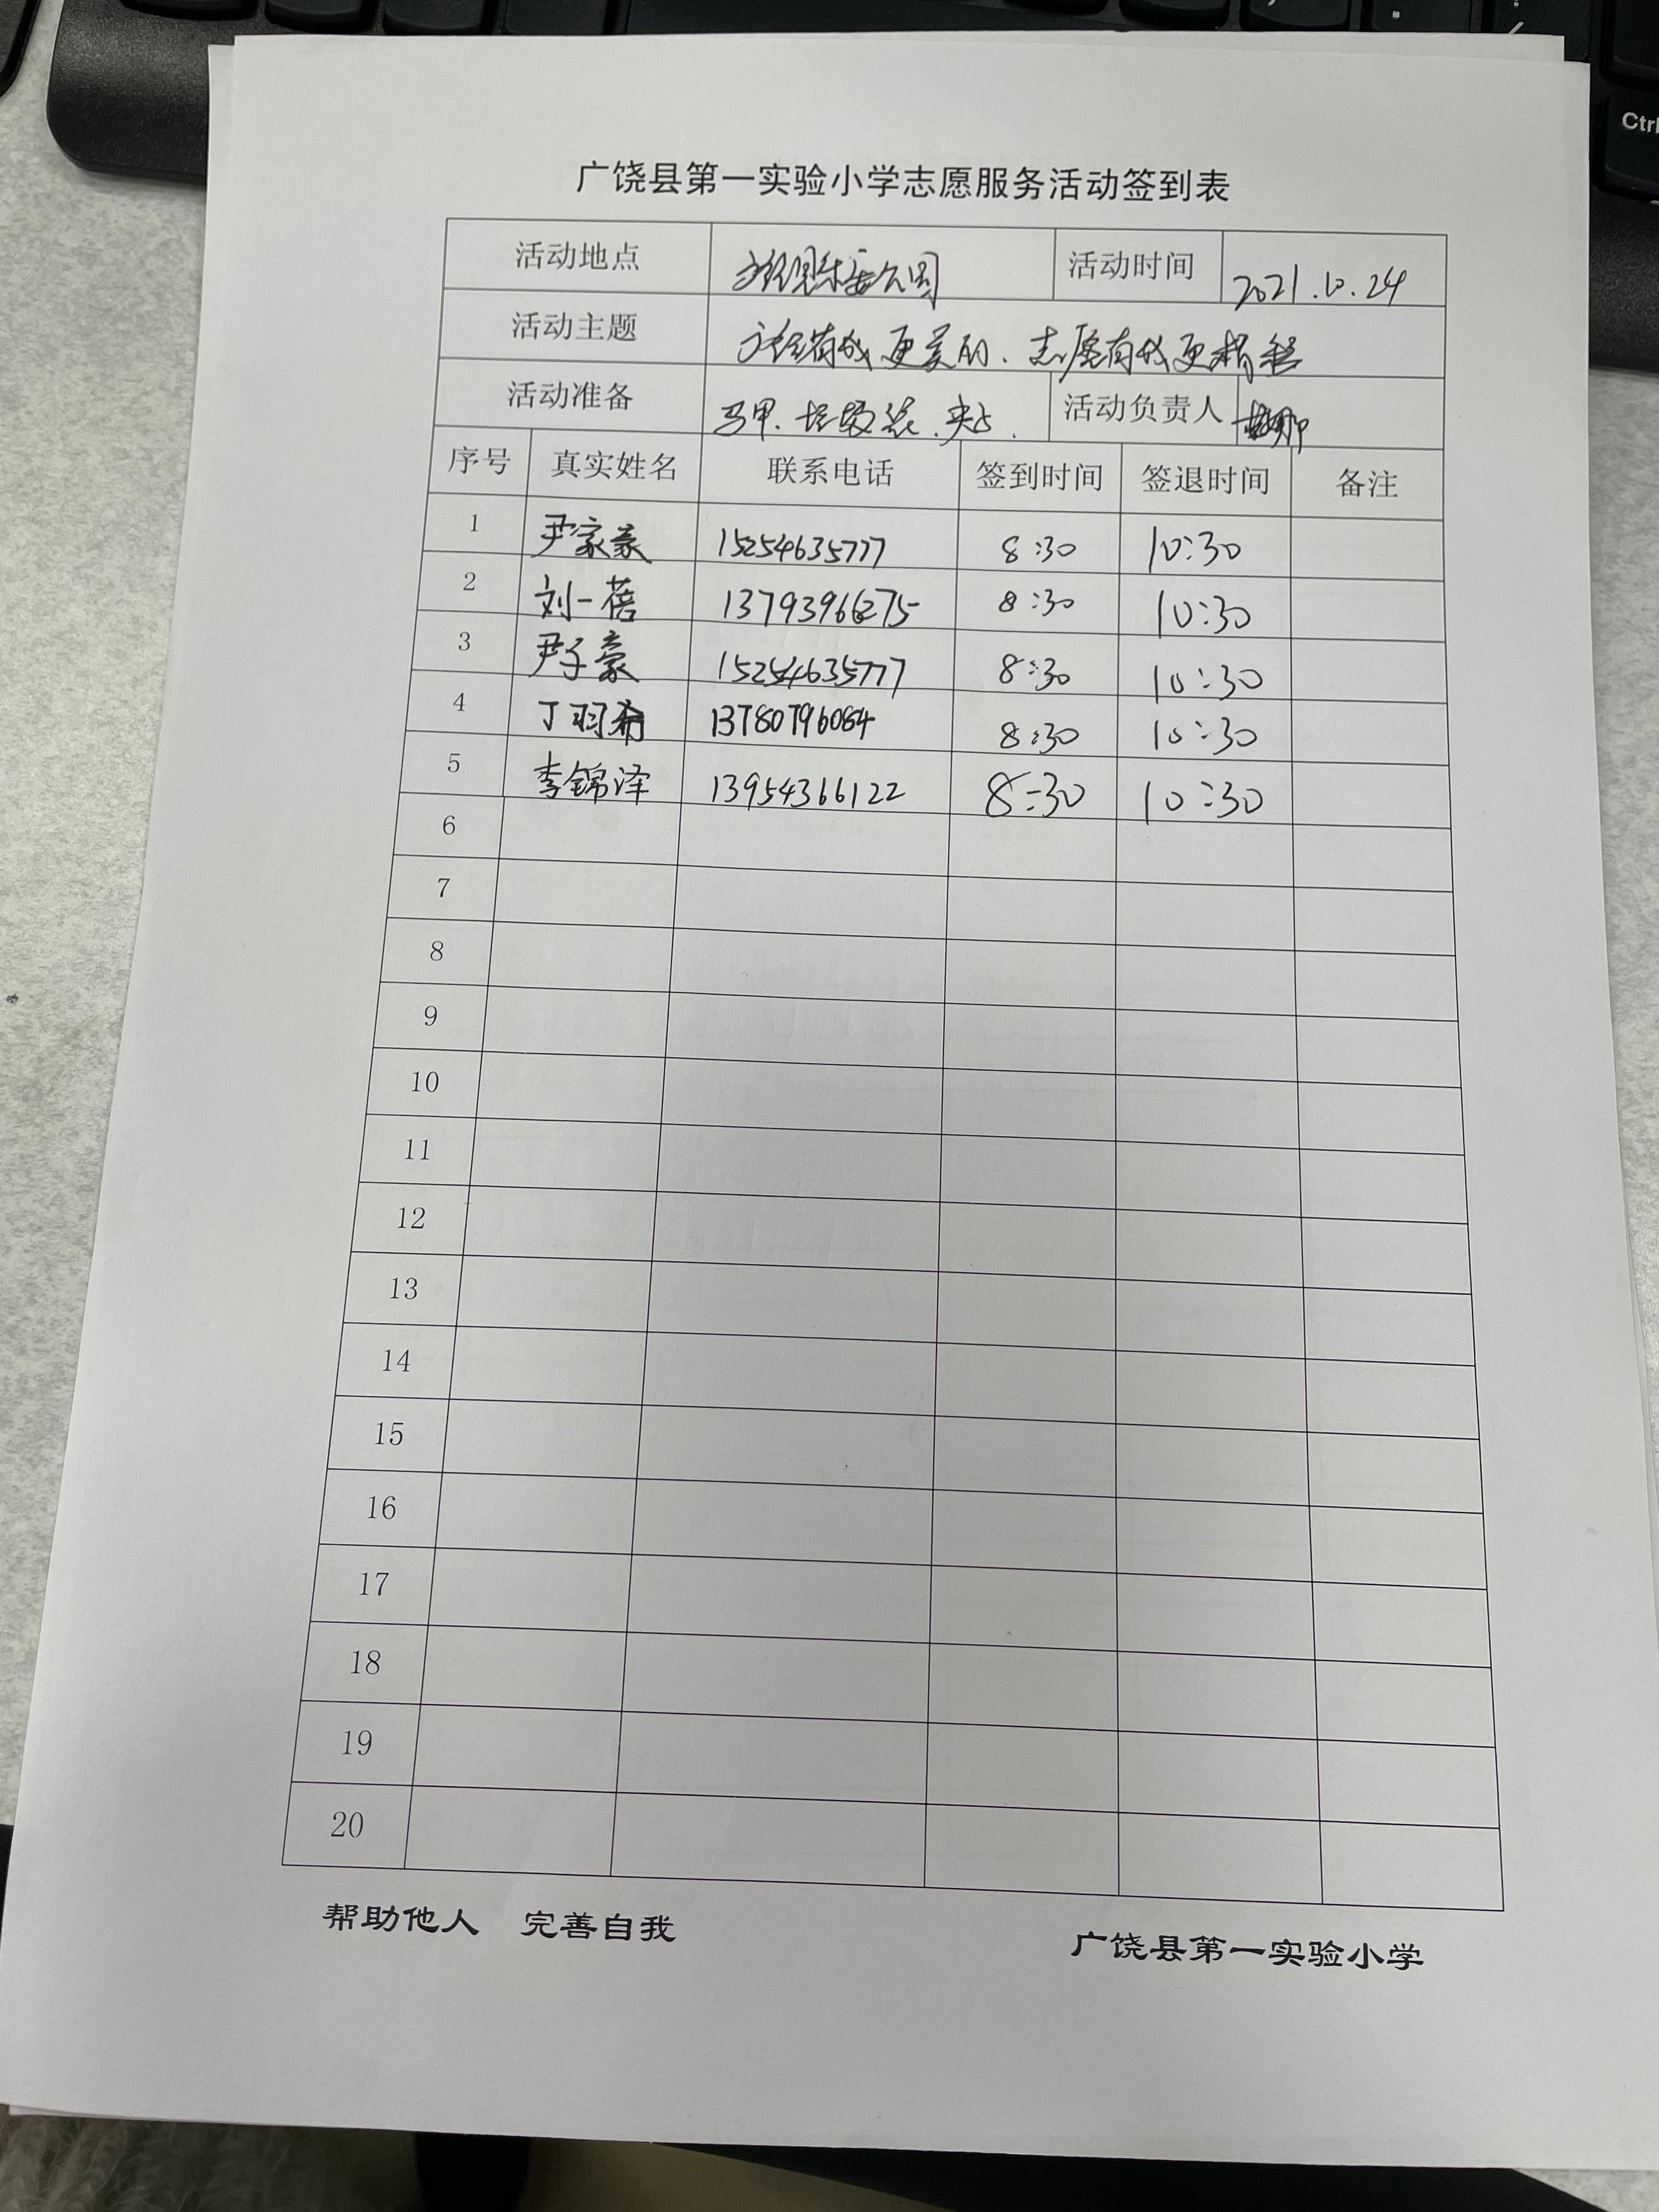 Ctrl
广饶县第一实验小学志愿服务活动签到表
活动地点 公园 活动时间 2021.10.24
活动主题 文经有我更美的、志愿有我更精彩
活动准备 马甲、垃圾袋、夹 活动负责人
序号 真实姓名 联系电话 签到时间 签退时间 备注
1 尹家豪 15254635777 8:30 10:30
2 刘一蓓 13793966275 8:30 10:30
3 尹子豪 15254635777 8:30 10:30
4 丁羽希 13780796084 8:30 10:30
5 李锦泽 13954366122 8:30 10:30
6
7
8
9
10
11
12
13
14
15
16
17
18
19
20
帮助他人 完善自我 广饶县第一实验小学